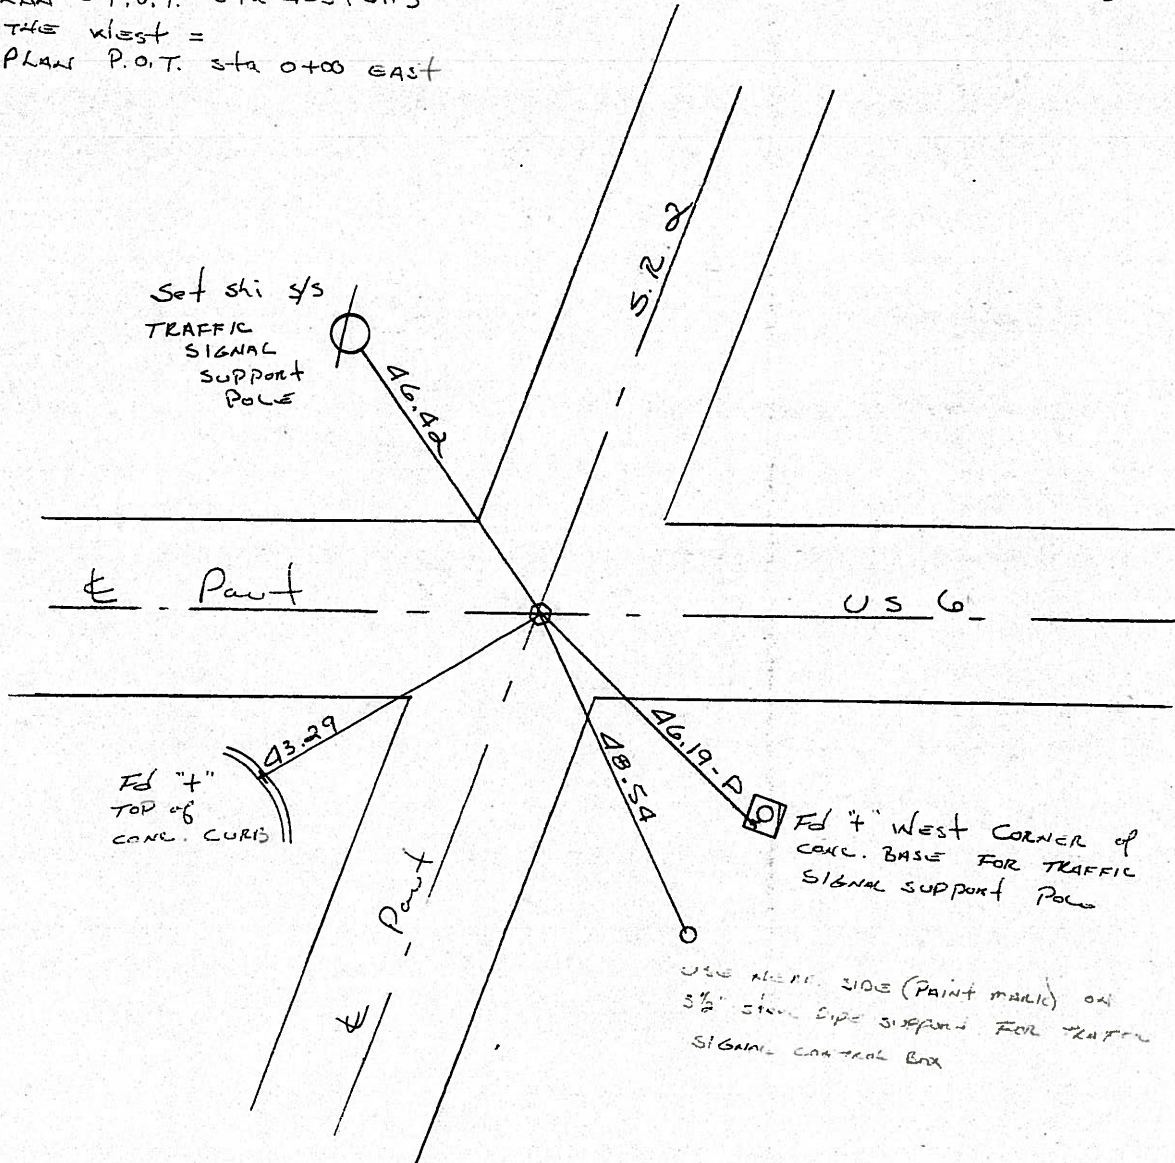 THE West =
PLAN P.O.T. sta 0+00 EAST
S.R. 2
Set shi s/s
TRAFFIC
SIGNAL
SUPPORT
POLE
46.42
℄ Pavt
US 6
43.29
46.19-A
48.54
Fd "+"
TOP of
CONC. CURB
Fd "+" West CORNER of
CONC. BASE FOR TRAFFIC
SIGNAL SUPPORT POLE
℄ Pavt
USE NEAR SIDE (PAINT MARK) ON
3½" STEEL PIPE SUPPORT FOR TRAFFIC
SIGNAL CONTROL BOX